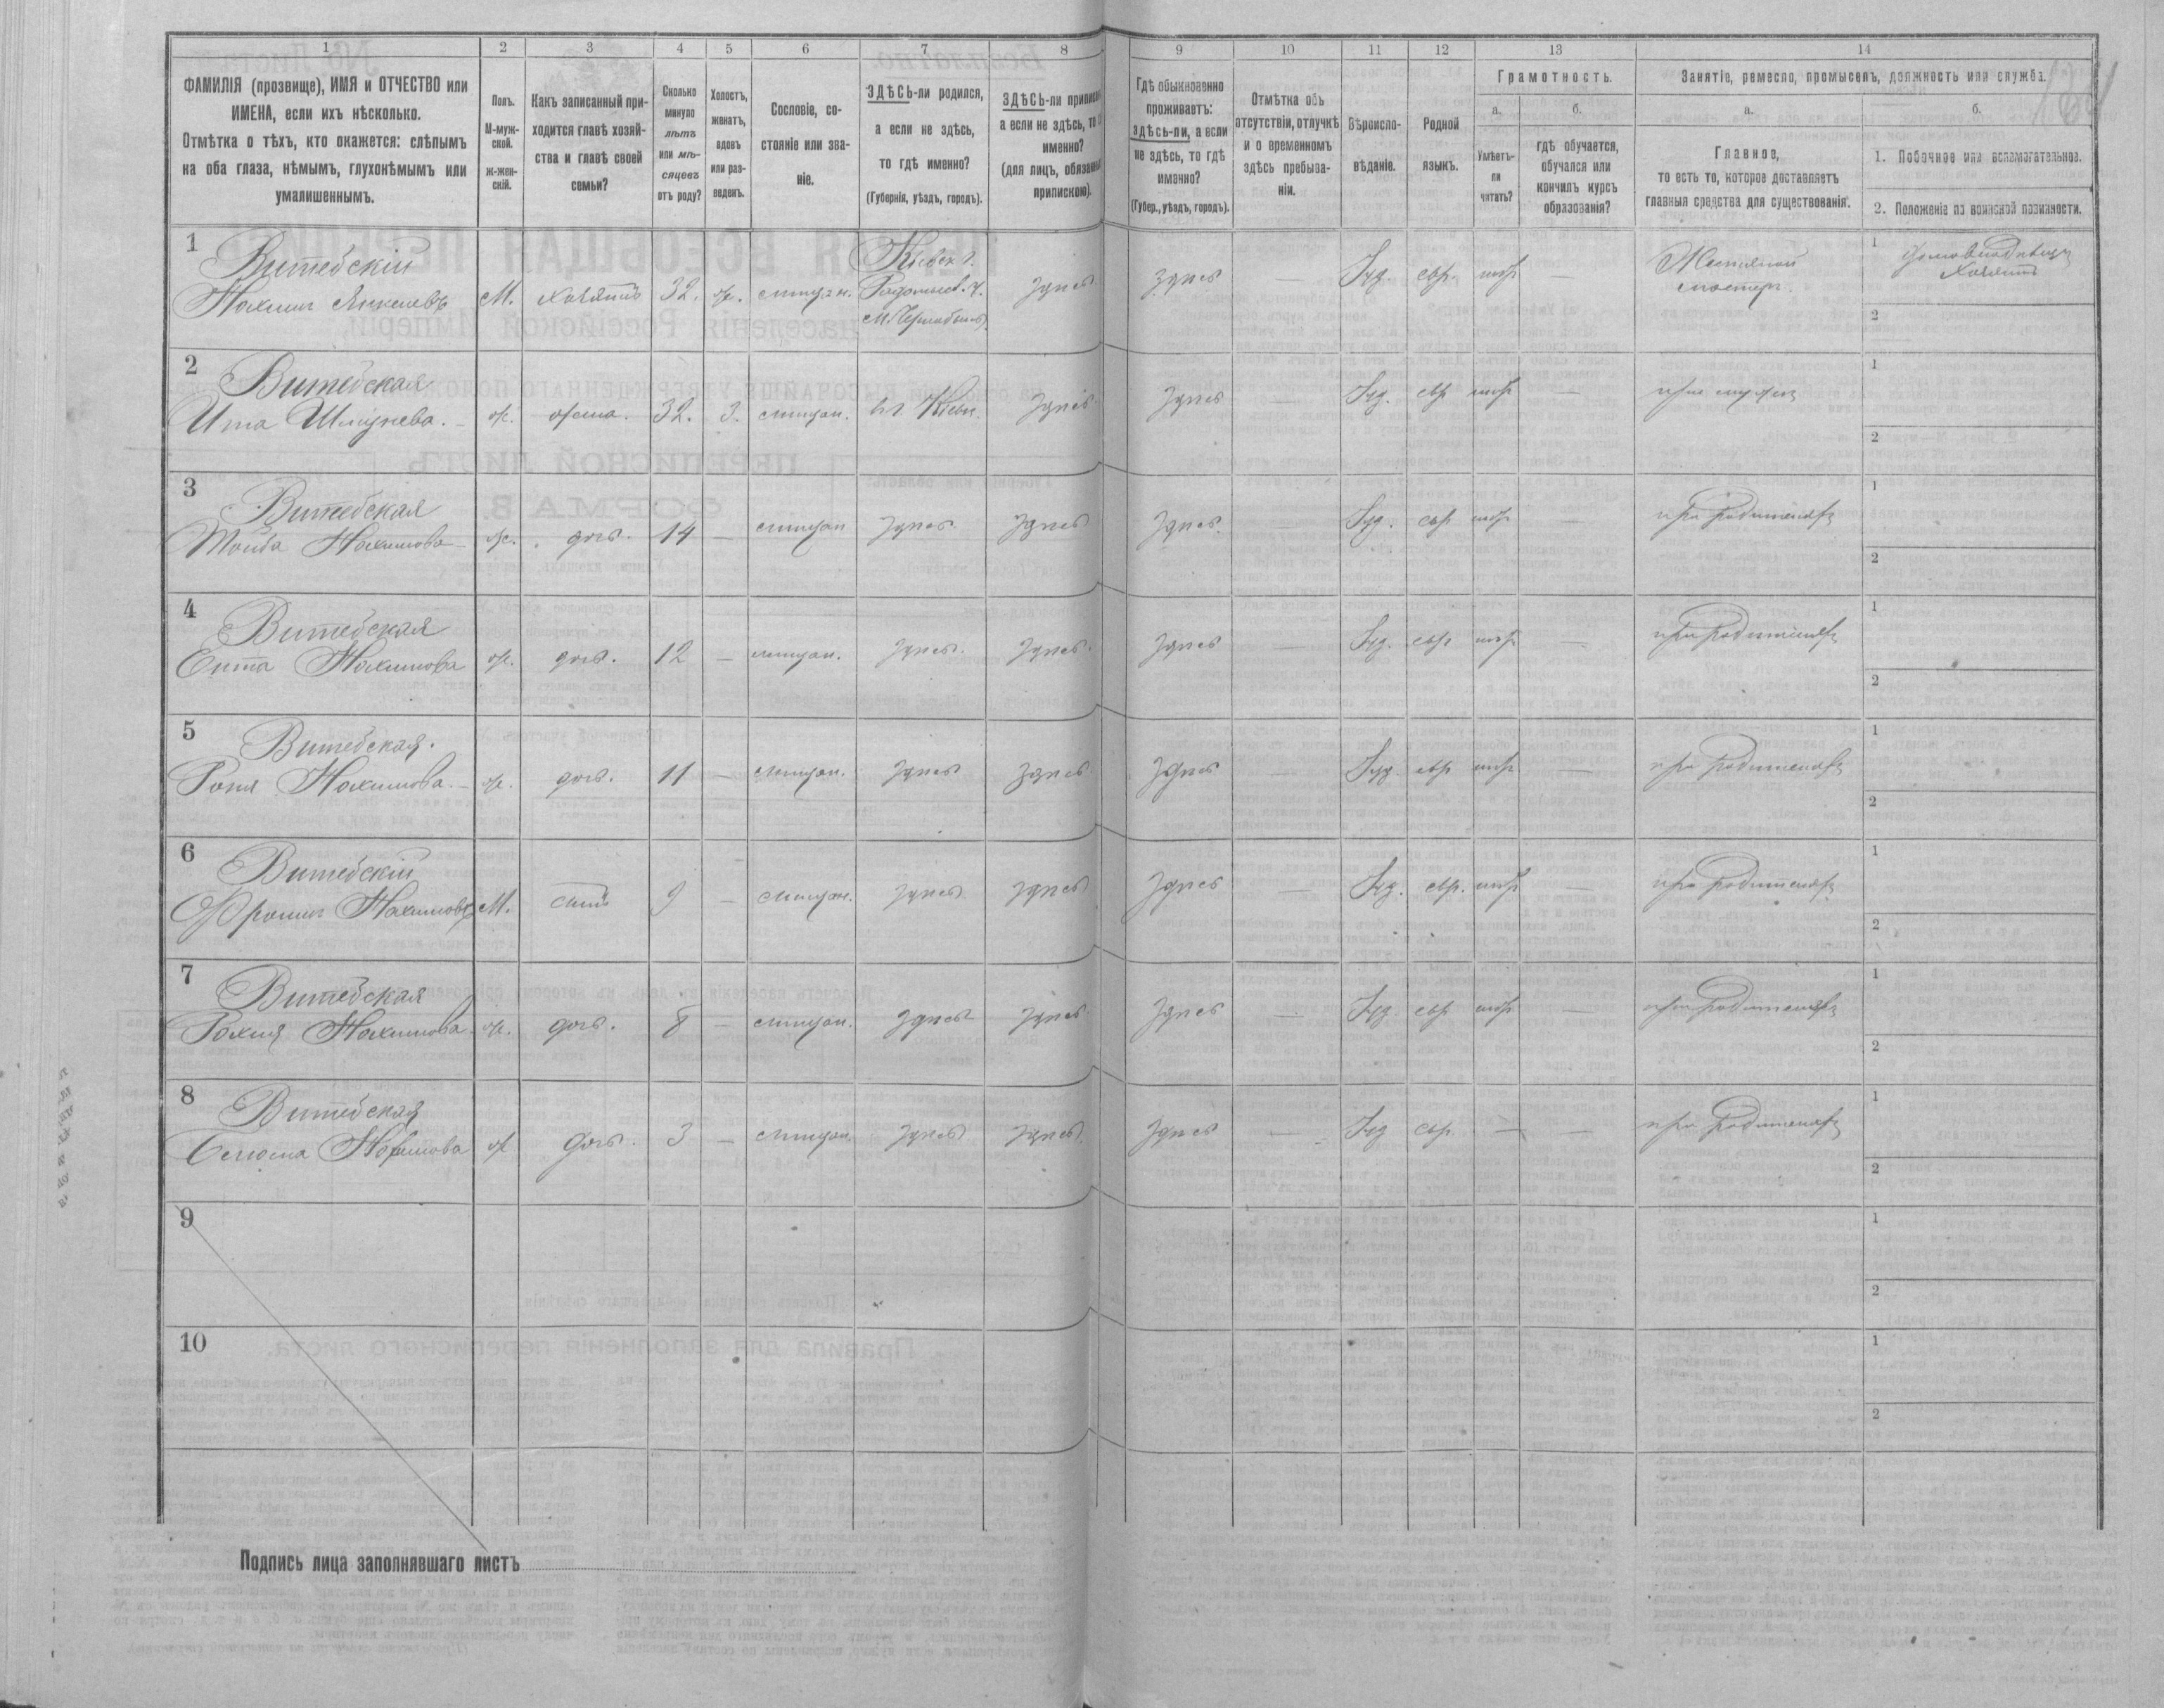 1 2 3 4 5 6 7 8 9 10 11 12 13 14
ФАМИЛІЯ (прозвище), ИМЯ и ОТЧЕСТВО или
ИМЕНА, если ихъ нѣсколько.
Отмѣтка о тѣхъ, кто окажется: слѣпымъ
на оба глаза, нѣмымъ, глухонѣмымъ или
умалишеннымъ.
Полъ.
М-муж-
ской.
ж-жен-
скій.
Какъ записанный при-
ходится главѣ хозяй-
ства и главѣ своей
семьи?
Сколько
минуло
лѣтъ
или мѣ-
сяцевъ
отъ роду?
Холостъ,
женатъ,
вдовъ
или раз-
веденъ.
Сословіе, со-
стояніе или зва-
ніе.
ЗДѢСЬ-ли родился,
а если не здѣсь,
то гдѣ именно?
(Губернія, уѣздъ, городъ).
ЗДѢСЬ-ли приписан
а если не здѣсь, то
именно?
(для лицъ, обязанных
припискою).
Гдѣ обыкновенно
проживаетъ:
здѣсь-ли, а если
не здѣсь, то гдѣ
именно?
(Губер., уѣздъ, городъ).
Отмѣтка объ
отсутствіи, отлучкѣ
и о временномъ
здѣсь пребыва-
ніи.
Вѣроиспо-
вѣданіе.
Родной
языкъ.
Грамотность.
а.
Умѣетъ-
ли
читать?
б.
гдѣ обучается,
обучался или
кончилъ курсъ
образованія?
Занятіе, ремесло, промыселъ, должность или служба.
а.
Главное,
то есть то, которое доставляетъ
главныя средства для существованія.
б.
1. Побочное или вспомогательное.
2. Положеніе по воинской повинности.
1
Витебскій
Нахимъ Янкелевъ М. хозяинъ 32. ж. мещан.
Кіевск г.
Радомысл. у.
М. Чернобыль
здѣсь здѣсь — Іуд. евр.
мастер.
1
Хозяинъ
2
2
Витебская
Ита Шмунева. ж. жена. 32. З. мещан. здѣсь здѣсь — Іуд. евр
1
2
3
Витебская
Тойба Нахимова ж. дочь. 14 — мещан здѣсь здѣсь здѣсь — Іуд. евр — при родителяхъ
1
2
4
Витебская
Ента Нахимова ж. дочь. 12 — мещан. здѣсь. здѣсь. здѣсь — Іуд. евр — при родителяхъ
1
2
5
Витебская.
Роня Нахимова. ж. дочь. 11 — мещан. здѣсь здѣсь здѣсь — Іуд. евр — при родителяхъ
1
2
6
Витебскій
Фроимъ Нахимовъ М. сынъ 9 — мещан. здѣсь здѣсь здѣсь — Іуд. евр. — при родителяхъ
1
2
7
Витебская
Рахиля Нахимова ж. дочь. 8 — мещан. здѣсь здѣсь здѣсь — Іуд. евр — при родителяхъ
1
2
8
Витебская
Нахимова ж дочь. 3 — мещан. здѣсь здѣсь здѣсь — Іуд евр. — — при родителяхъ
1
2
9
1
2
10
1
2
Подпись лица заполнявшаго листъ